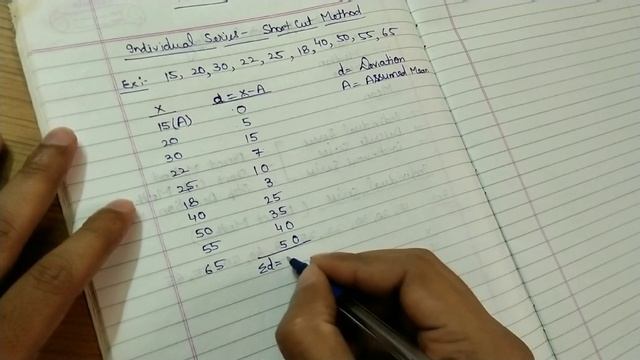 Individual Series - Short Cut Method
Ex:- 15, 20, 30, 22, 25, 18, 40, 50, 55, 65
d = Deviation
A = Assumed Mean
X d = X-A
15(A) 0
20 5
30 15
22 7
25 10
18 3
40 25
50 35
55 40
65 50
Σd =